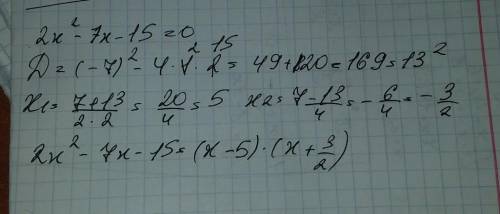 2x² - 7x - 15 = 0
D = (-7)² - 4 · 2 · 15 = 49 + 120 = 169 = 13²
x₁ = (7+13)/(2·2) = 20/4 = 5 x₂ = (7-13)/4 = -6/4 = -3/2
2x² - 7x - 15 = (x - 5) · (x + 3/2)